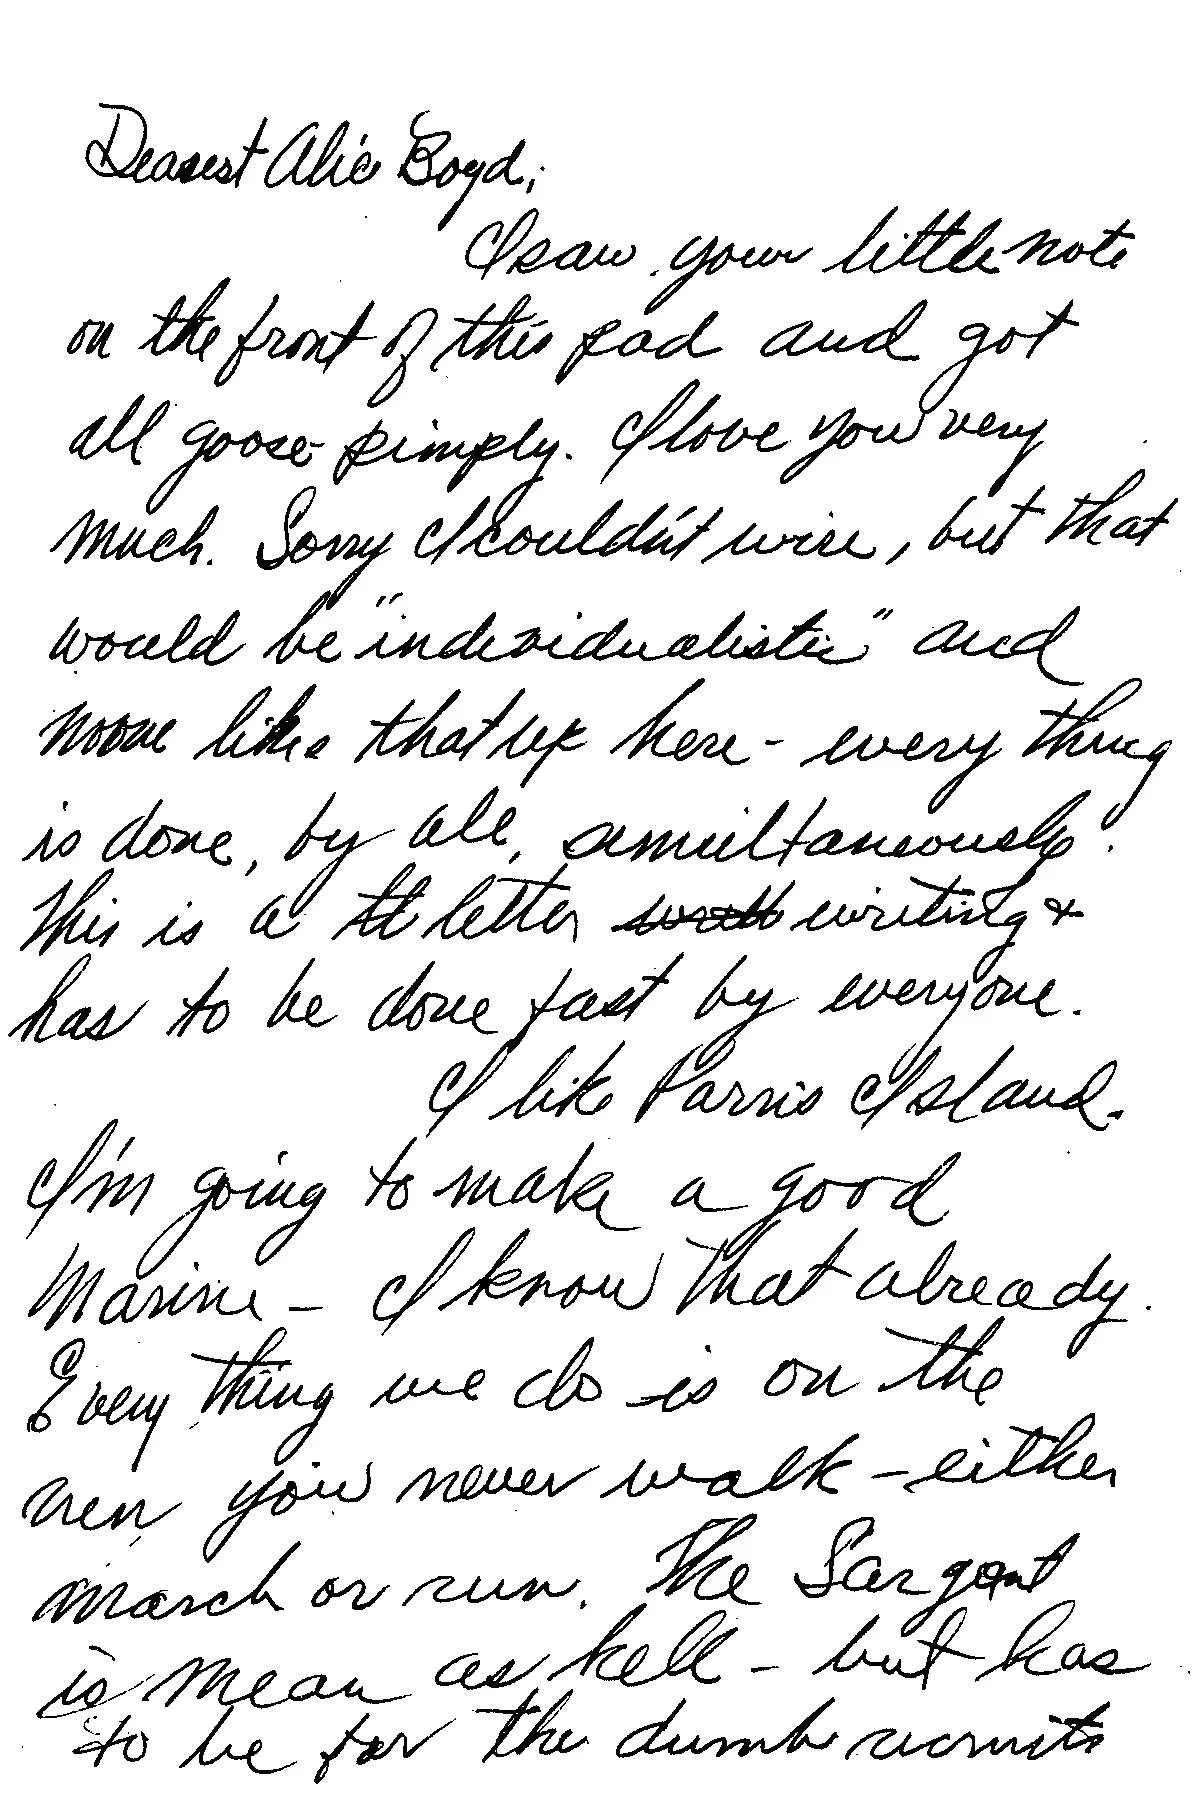 Dearest Alice Boyd,
I saw your little note
on the front of this pad and got
all goose pimply. I love you very
much. Sorry I couldn't wire, but that
would be "individualistic" and
noone likes that up here - every thing
is done, by all, simultaneously.
This is a letter writing &
has to be done fast by everyone.
I like Parris Island.
I'm going to make a good
Marine - I know that already.
Every thing we do is on the
run, you never walk - either
march or run. The Sargent
is mean as hell - but has
to be for the dumb recruits